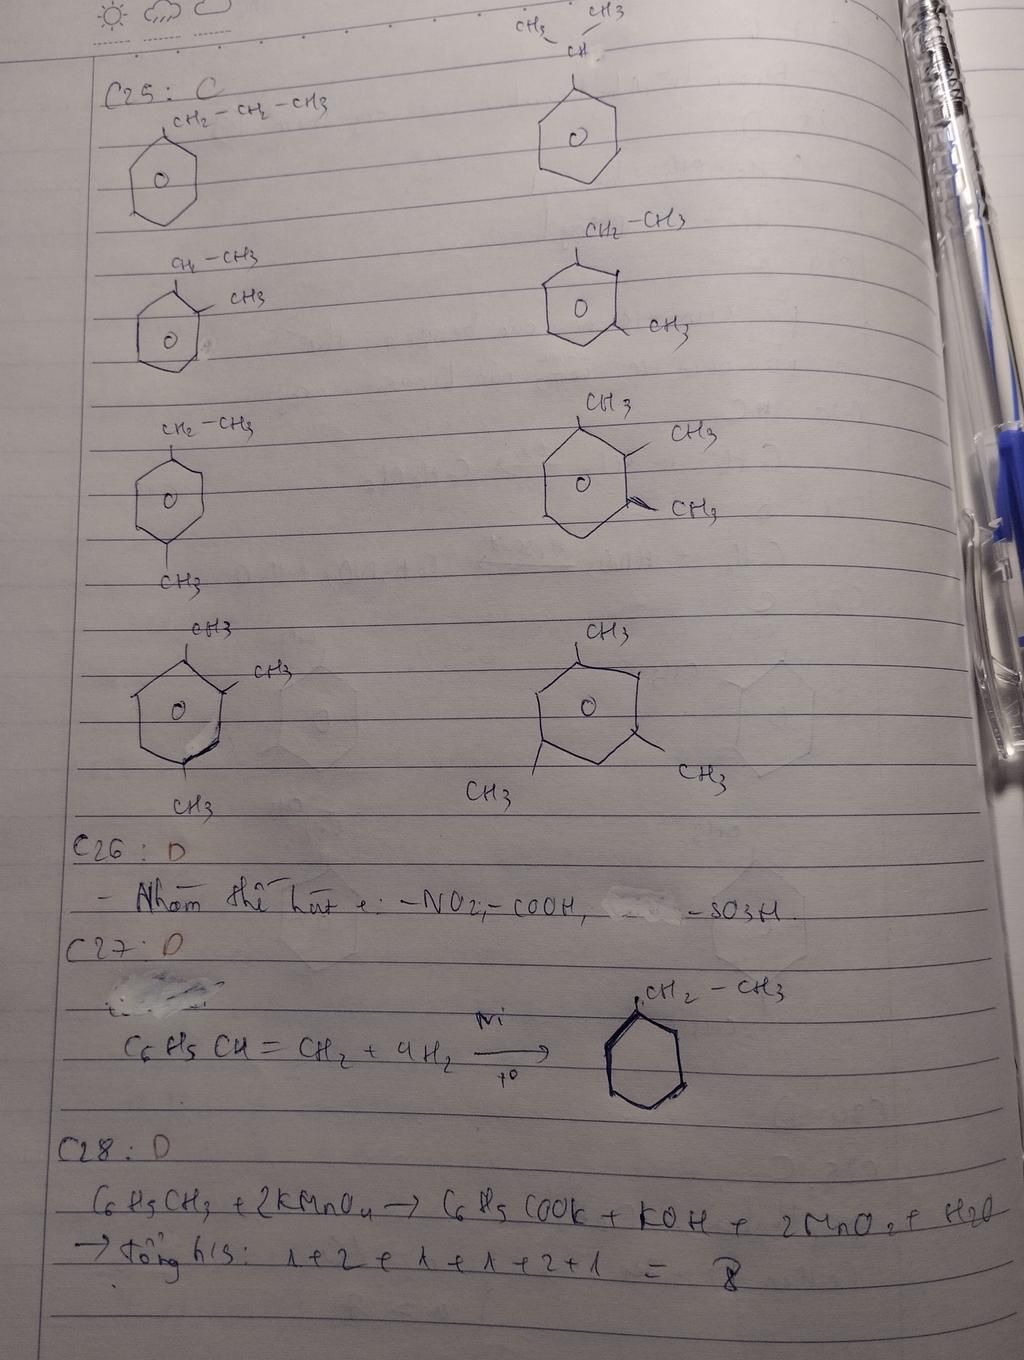 C25: C
CH2-CH2-CH3
CH3 CH3
CH
CH2-CH3
CH3
CH2-CH3
CH3
CH2-CH3
CH3
CH3
CH3
CH3
CH3
CH3
CH3
CH3
CH3
CH3
C26: D
- Nhóm thế hút e: -NO2, -COOH, -SO3H.
C27: D
C6H5CH=CH2 + 4H2 Ni t° CH2-CH3
C28: D
C6H5CH3 + 2KMnO4 → C6H5COOK + KOH + 2MnO2 + H2O
→ tổng h/s: 1+2+1+1+2+1 = 8